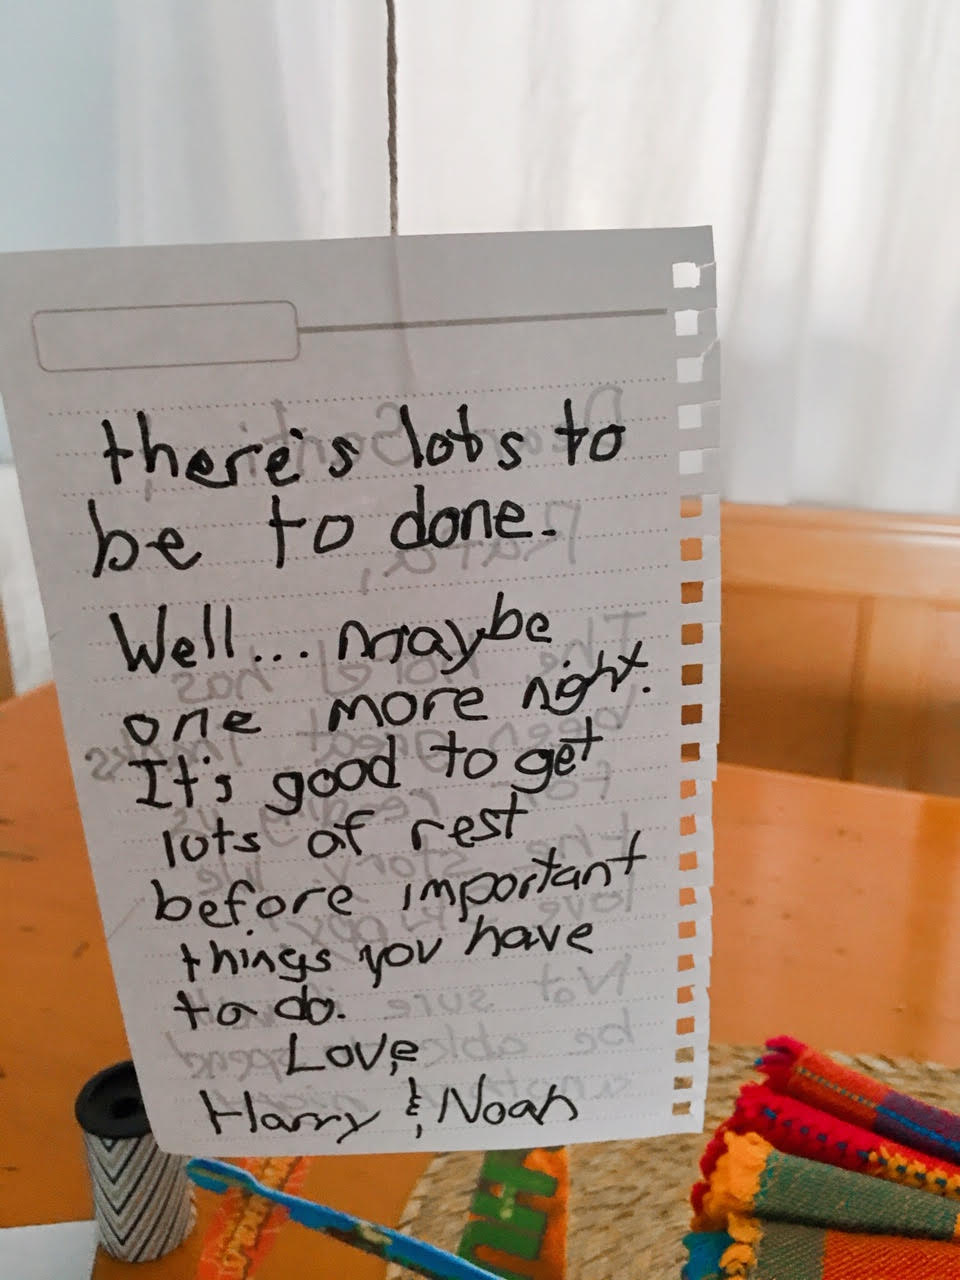 there's lots to
be to done.
Well... maybe
one more night.
It's good to get
lots of rest
before important
things you have
to do.
Love
Harry & Noah